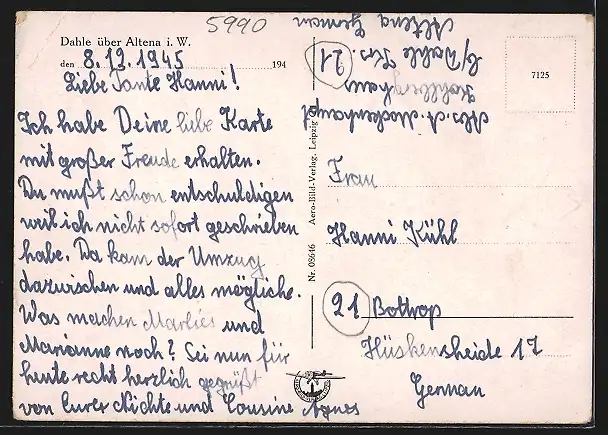 5990
Dahle über Altena i. W.
den 8.12.1945 194
Liebe Tante Hanni!
Ich habe Deine liebe Karte
mit großer Freude erhalten.
Du mußt schon entschuldigen
weil ich nicht sofort geschrieben
habe. Da kam der Umzug
dazwischen und alles mögliche.
Was machen Marlies und
Marianne noch? Sei nun für
heute recht herzlich gegrüßt
von Eurer Nichte und Cousine Agnes
Nr. 08646 Aero-Bild-Verlag, Leipzig
Abs. A.
Kohlberghaus
21 b/ Dahle Krs.
Altena German
7125
Frau
Hanni Kühl
21 Bottrop
Hüskensheide 17
German